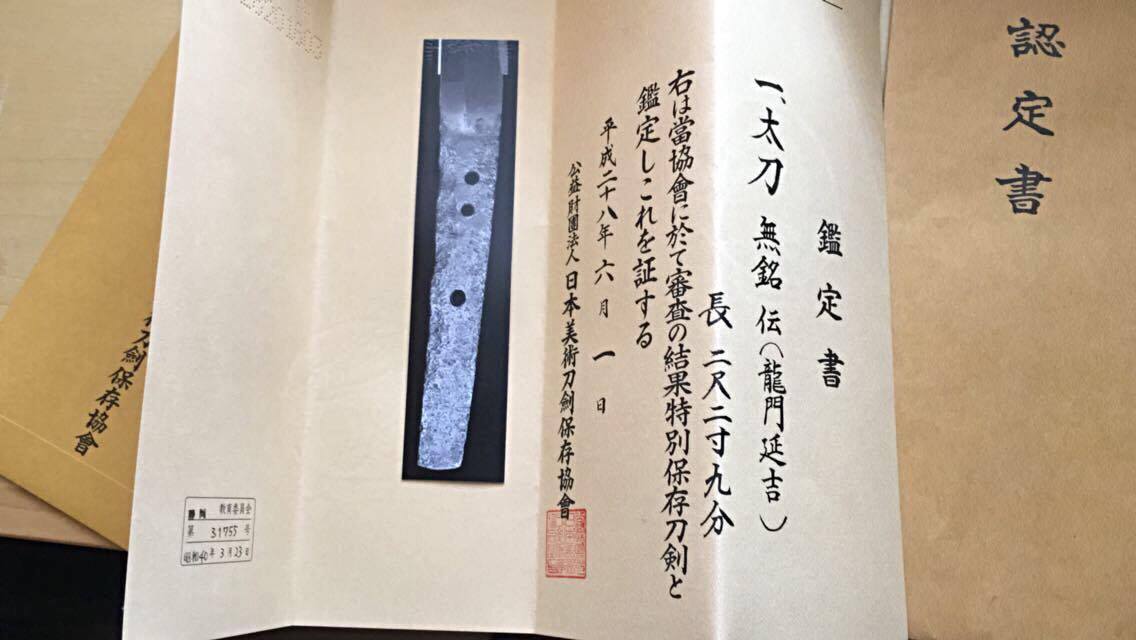 認定書
鑑定書
一、太刀 無銘 伝(龍門延吉)
長 二尺二寸九分
右は當協會に於て審査の結果特別保存刀剣と
鑑定しこれを証する
平成二十八年六月一日
公益財團法人 日本美術刀劍保存協會
教育委員会
第 31755 号
昭和40年3月23日
刀劍保存協會